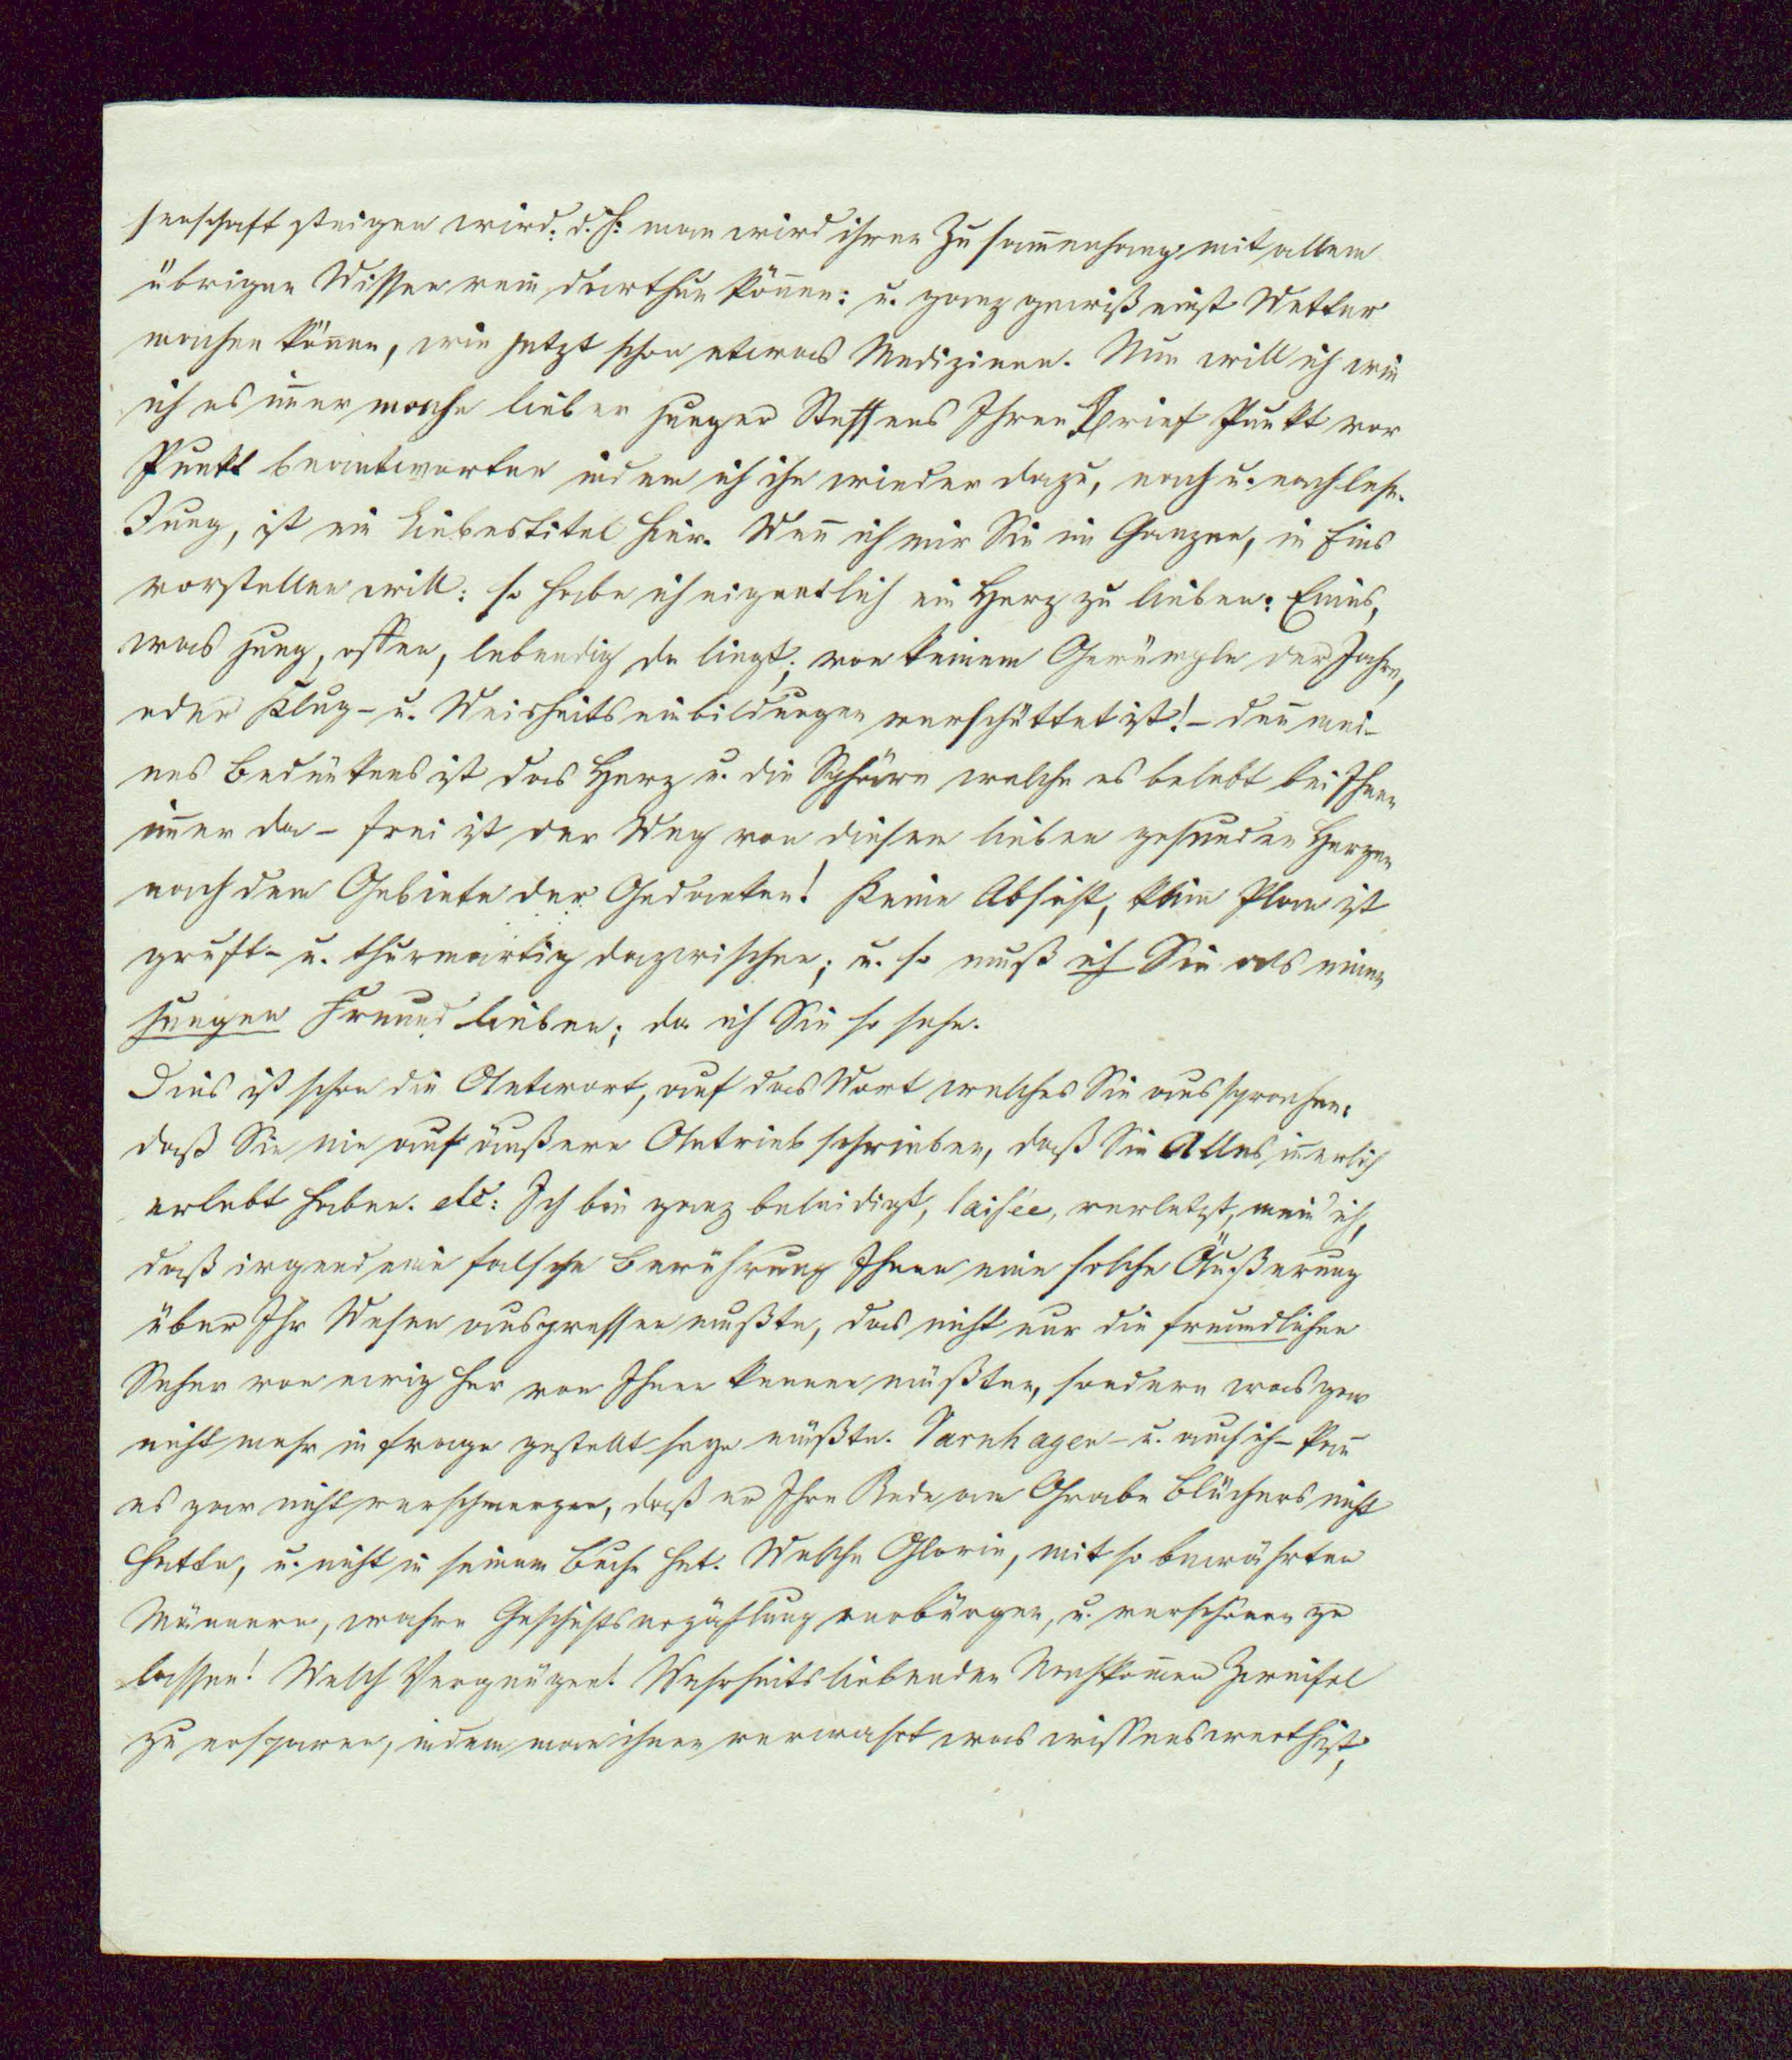 senschaft steigen wird: d. h: man wird ihren Zusam̄enhang mit allem
übrigen Wissen rein darthun kön̄en: u. ganz gewiß einst Wetter
machen kön̄en, wie jetzt schon etwas Medizinen. Nun will ich wie
ich es im̄er mache lieber junger Steffens Ihren Brief Punkt vor
Punkt beantworten indem ich ihn wieder dazu, nach u. nach lese.
Jung, ist ein Liebestitel hier. Wen̄ ich mir Sie im Ganzen, in Eins
vorstellen will: so habe ich eigentlich ein Herz zu lieben: Eines,
was jung, offen, lebendig da liegt; von keinem Gerümple der Jahre,
oder Klug- u. Weisheitseinbildungen verschüttet ist! – den̄ mei-
nes Bedünkens ist das Herz u. die Sphäre welche es belebt bei Ihnen
im̄er da – frei ist der Weg von diesem lieben gesunden Herzen
nach dem Gebiete der Gedanken! Keine Absicht, kein Plan ist
gruft- u. thurmartig dazwischen; u. so muß ich Sie als einen
jungen Freund lieben; da ich Sie so sehe.
Dies ist schon die Antwort, auf das Wort welches Sie aussprachen:
daß Sie nie auf äußeren Antrieb schrieben, daß Sie Alles in̄erlich
erlebt haben. etc: Ich bin ganz beleidigt, laisée, verletzt, mein' ich,
daß irgend eine falsche Berührung Ihnen eine solche Äußerung
über Ihr Wesen auspressen mußte, das nicht nur die freundlichen
Seher von ewig her von Ihnen kennen müßten, sondern was gar
nicht mehr in Frage gestellt seyn müßte. Varnhagen – u. auch ich – kan̄
es gar nicht verschmerzen, daß er Ihre Rede am Grabe Blüchers nicht
hatte, u. nicht in seinem Buche hat. Welche Glorie, mit so bewährten
Männern, wahre Geschichtserzählung verbürgen, u. verschönen zu
lassen! Welch Vergnügen! Wahrheitsliebenden Nachkom̄en Zweifel
zu ersparen, indem man ihnen verwahrt was wissenswerth ist,